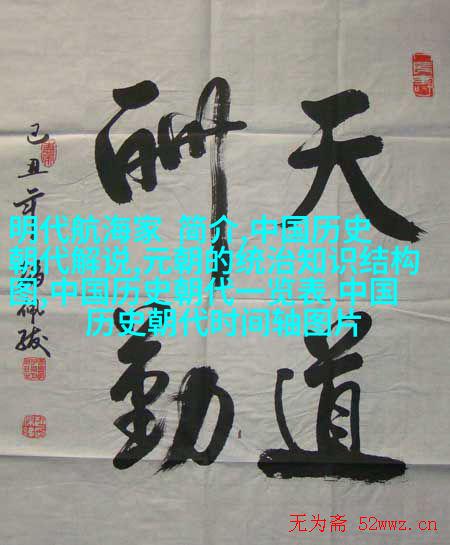 天道
酬勤
己丑
明代航海家 简介,中国历史
朝代解说,元朝的统治知识结构
图,中国历史朝代一览表,中国
历史朝代时间轴图片
无为斋 52wwz.cn